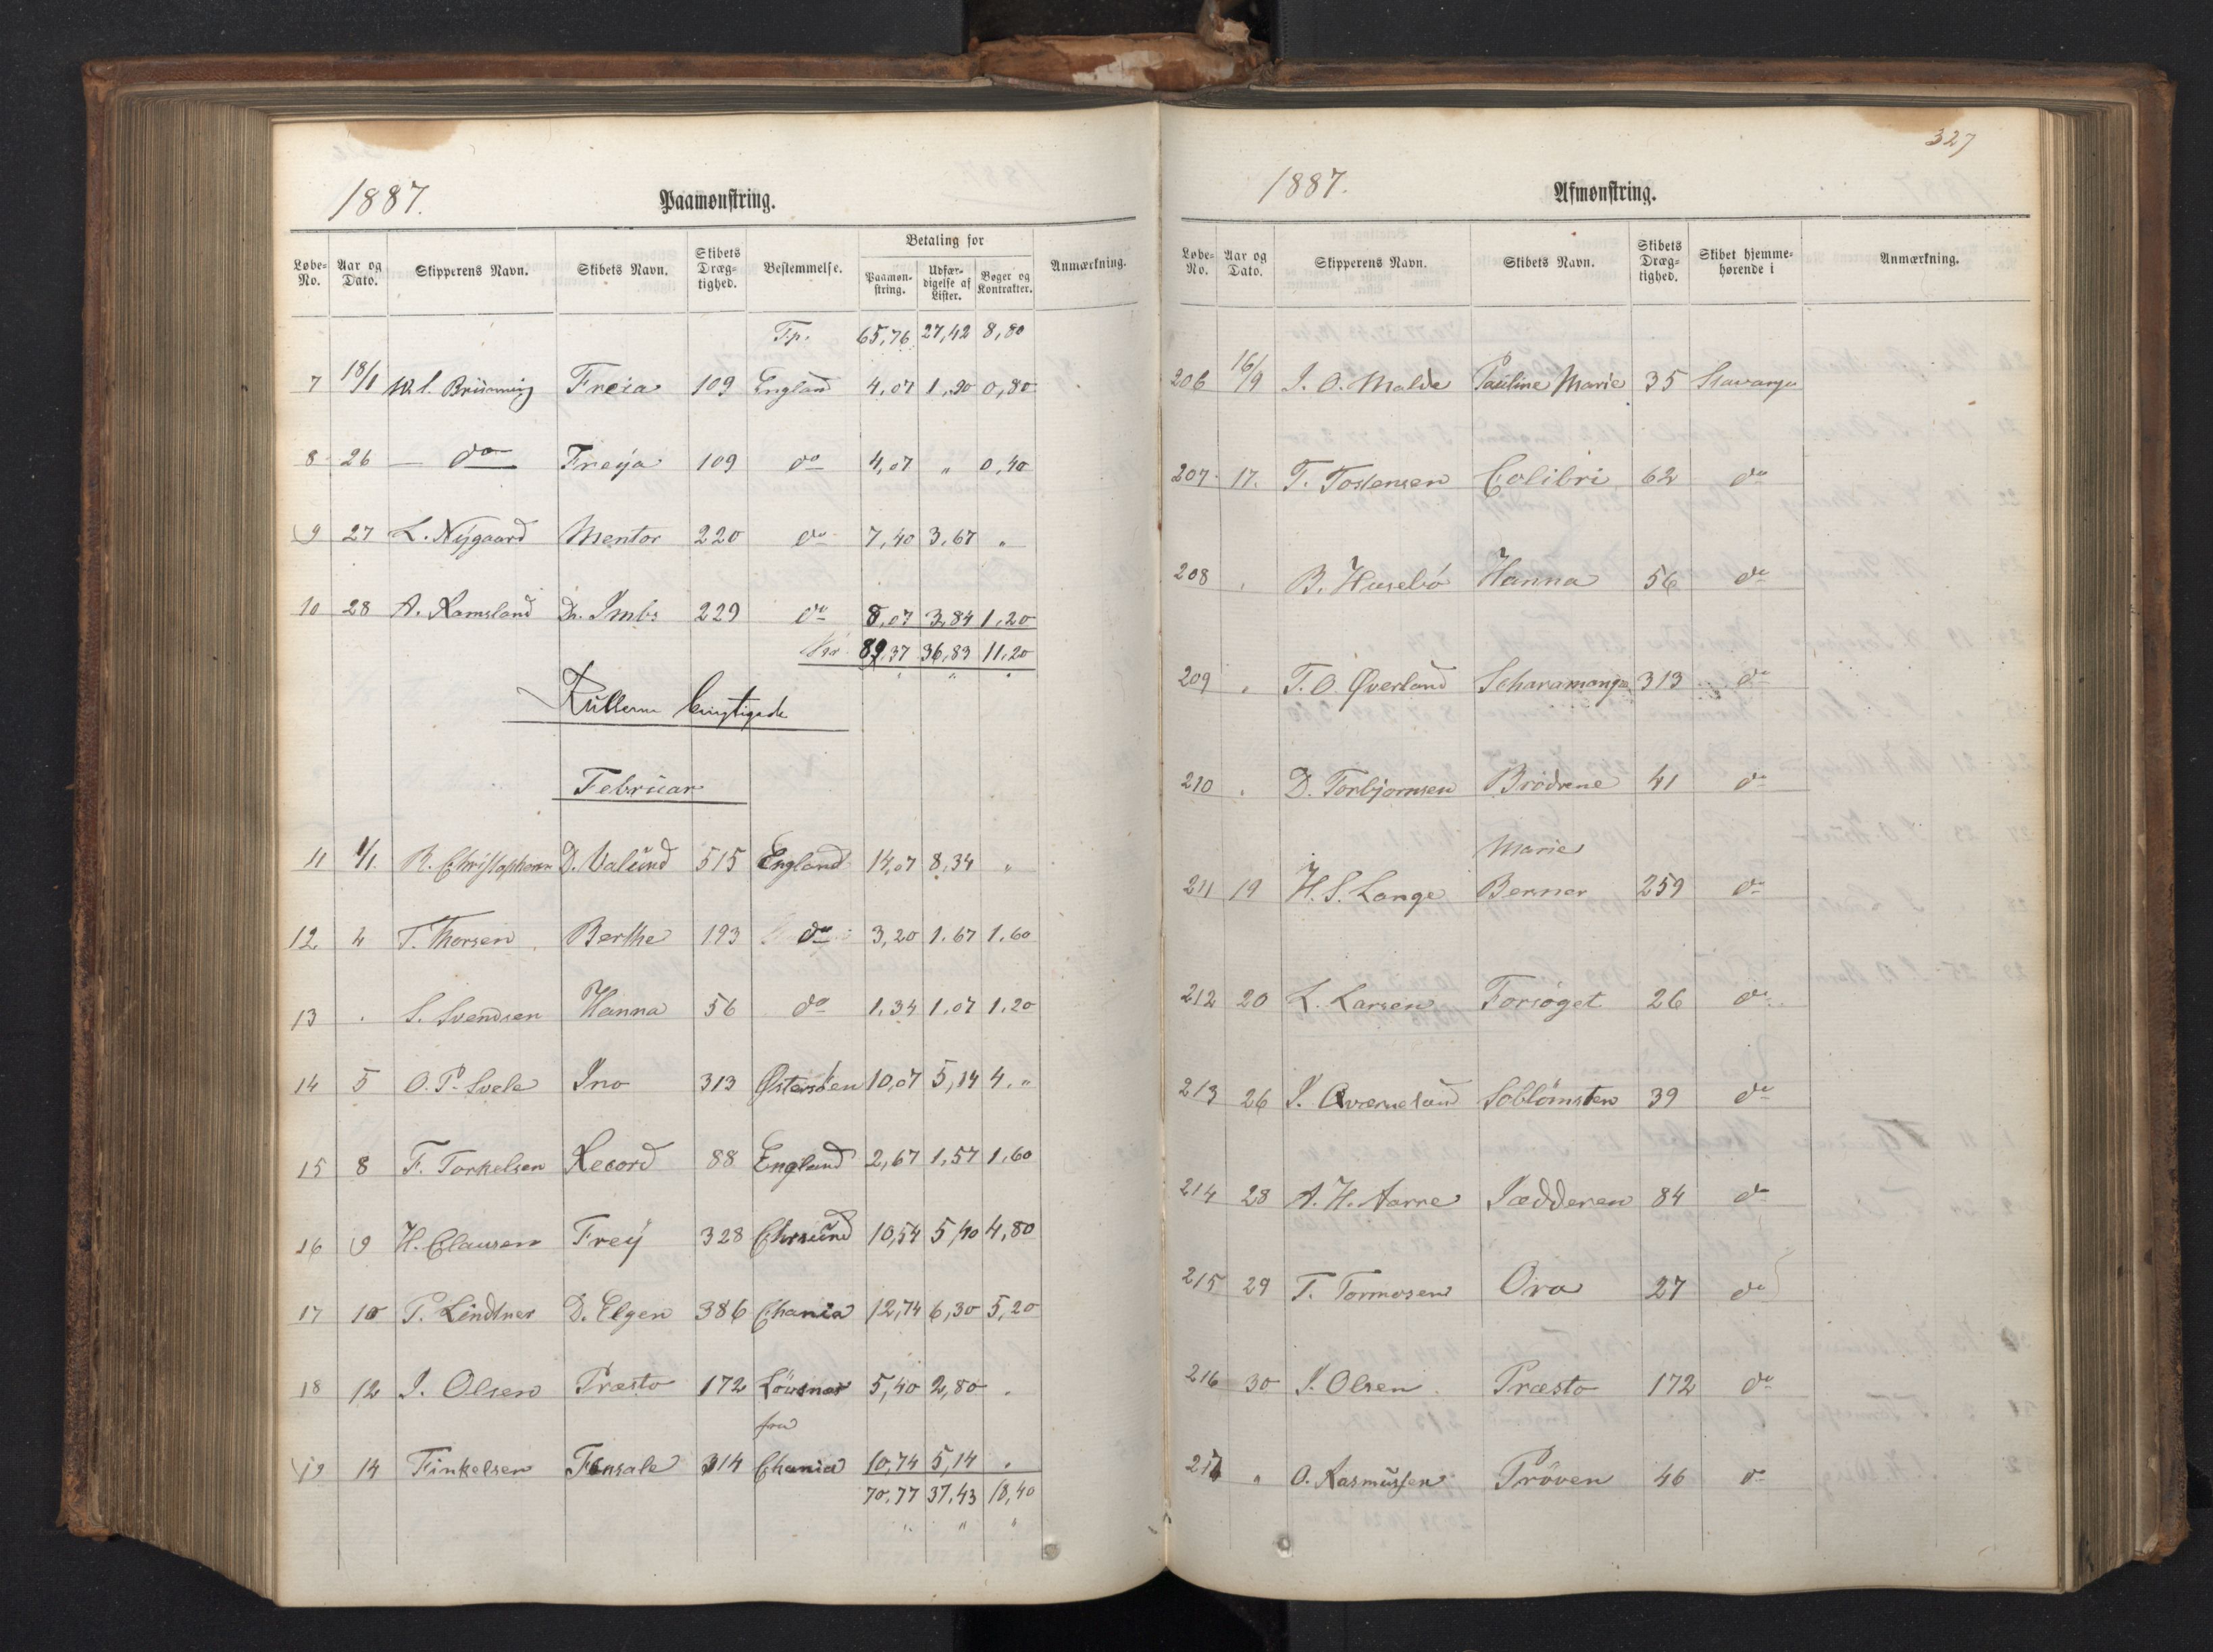 1887.
Paamønstring.
Løbe-No. Aar og Dato. Skipperens Navn. Skibets Navn. Skibets Dræg-tighed. Bestemmelse. Betaling for Paamøn-string. Udfær-digelse af Lister. Bøger og Kontrakter. Anmærkning.
Tp. 65,76 27,42 8,80
7 18/1 Brünning Freia 109 England 4,07 1,90 0,80
8 26 — do — Freya 109 do 4,07 " 0,40
9 27 L. Nygaard Mentor 220 do 7,40 3,67 "
10 28 A. Ramsland Dr. Imbs 229 do 8,07 3,84 1,20
Kr 89,37 36,83 11,20
Rullerne
Februar
11 1/1. R. Christophersen D. Valund 515 England 14,07 8,34 "
12. 4 T. Thorsen Berthe 193 do 3,20 1.67 1.60
13 . S. Svendsen Hanna 56 do 1,34 1,07 1,20
14 5 O. P. Svele Ino 313 Østersøen 10,07 5,14 4. "
15 8 F. Torkelsen Record 88 England 2,67 1,57 1,60
16 9 H. Clausen Frey 328 Chrsund 10,54 5,40 4,80
17 10 P. Lindtner D. Elgen 386 Chania 12,74 6,30 5,20
18 12 I. Olsen Præsto 172 5,40 2,80 .
fra
19 14 Finkelsen Fensale 314 Chania 10,74 5,14 "
70,77 37,43 18,40
327
1887.
Afmønstring.
Løbe-No. Aar og Dato. Skipperens Navn. Skibets Navn. Skibets Dræg-tighed. Skibet hjemme-hørende i Anmærkning.
206 16/9 I. O. Malde Pauline Marie 35 Stavanger
207 17. T. Tostensen Colibri 62 do
208 . B. Husebö Hanna 56 do
209 " T. O. Øverland Scharamanga 313 do
210 . D. Torbjornsen Brödrene 41 do
Marie
211 19 H. S. Lange Berner 259 do
212 20 L. Larsen Forsøget 26 do
213 26 I. Söblomsten 39 do
214 28 A. H. Aarre Jædderen 84 do
215 29 T. Tormosen Ora 27 do
216 30 I. Olsen Præsto 172 do
217 " O. Rasmussen Pröven 46 do